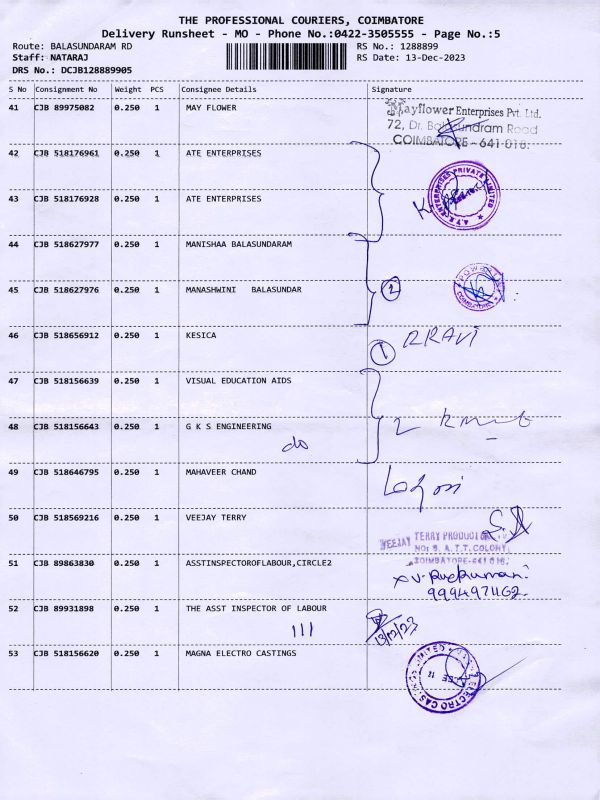 THE PROFESSIONAL COURIERS, COIMBATORE
Delivery Runsheet - MO - Phone No.:0422-3505555 - Page No.:5
Route: BALASUNDARAM RD
RS No.: 1288899
Staff: NATARAJ
RS Date: 13-Dec-2023
DRS No.: DCJB128889905
S No Consignment No Weight PCS Consignee Details Signature
41 CJB 89975082 0.250 1 MAY FLOWER
Mayflower Enterprises Pvt. Ltd.
72, Dr. Balasundram Road
COIMBATORE - 641 018.
42 CJB 518176961 0.250 1 ATE ENTERPRISES
43 CJB 518176928 0.250 1 ATE ENTERPRISES
A.T.E. ENTERPRISES PRIVATE LIMITED
44 CJB 518627977 0.250 1 MANISHAA BALASUNDARAM
45 CJB 518627976 0.250 1 MANASHWINI BALASUNDAR
2
COIMBATORE
46 CJB 518656912 0.250 1 KESICA
1 RRAVI
47 CJB 518156639 0.250 1 VISUAL EDUCATION AIDS
48 CJB 518156643 0.250 1 G K S ENGINEERING
do
2
49 CJB 518646795 0.250 1 MAHAVEER CHAND
50 CJB 518569216 0.250 1 VEEJAY TERRY
VEEJAY TERRY PRODUCTS
NO: 9. A.T.T. COLONY
COIMBATORE-641 018.
51 CJB 89863830 0.250 1 ASSTINSPECTOROFLABOUR,CIRCLE2
V. Rukkumani
9994971162.
52 CJB 89931898 0.250 1 THE ASST INSPECTOR OF LABOUR
111
13/12/23
53 CJB 518156620 0.250 1 MAGNA ELECTRO CASTINGS